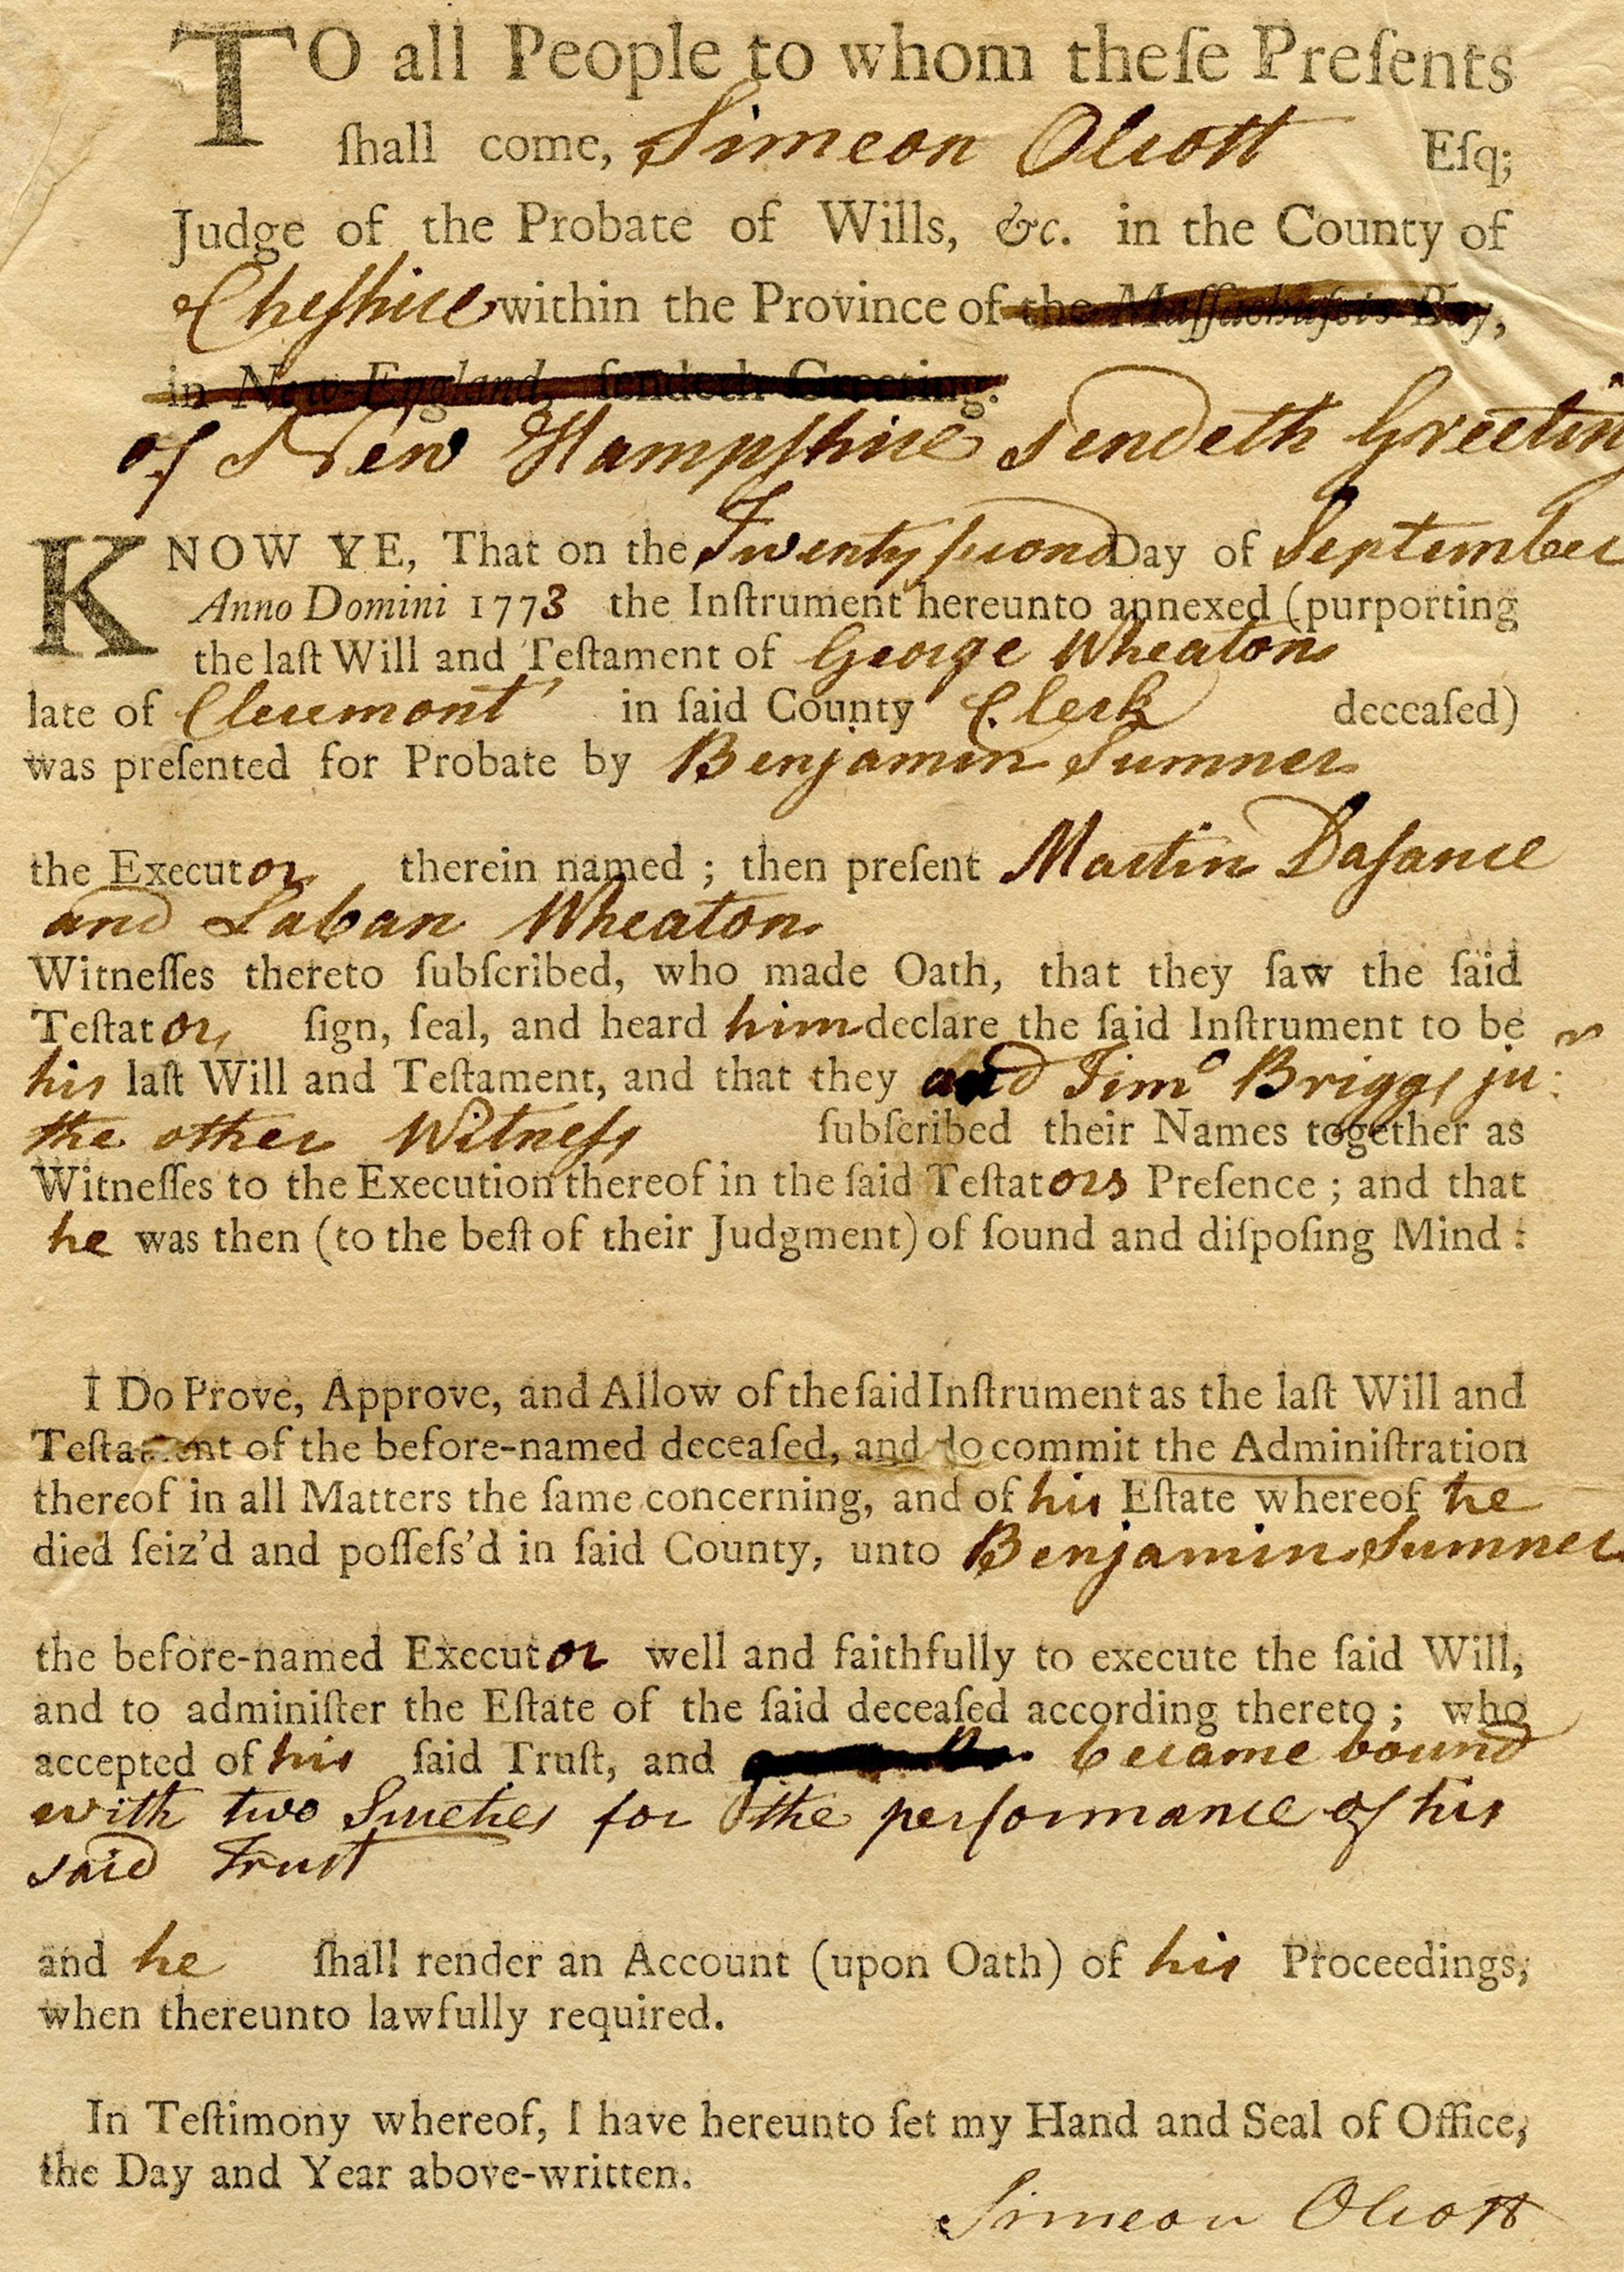 TO all People to whom theſe Preſents
ſhall come, Simeon Olcott Eſq;
Judge of the Probate of Wills, &c. in the County of
Cheſhire within the Province of the Maſſachuſets-Bay,
in New-England, ſendeth Greeting.
of New Hampſhire Sendeth Greetin
KNOW YE, That on the Twenty ſecond Day of September
Anno Domini 1773 the Inſtrument hereunto annexed (purporting
the laſt Will and Teſtament of George Wheaton
late of Claremont in ſaid County Clerk deceaſed)
was preſented for Probate by Benjamin Sumner
the Executor therein named ; then preſent Martin Daſance
and Laban Wheaton
Witneſſes thereto ſubſcribed, who made Oath, that they ſaw the ſaid
Teſtator ſign, ſeal, and heard him declare the ſaid Inſtrument to be
his laſt Will and Teſtament, and that they and Timo Briggs jur:
the other Witneſs ſubſcribed their Names together as
Witneſſes to the Execution thereof in the ſaid Teſtators Preſence ; and that
he was then (to the beſt of their Judgment) of ſound and diſpoſing Mind :
I Do Prove, Approve, and Allow of the ſaid Inſtrument as the laſt Will and
Teſtament of the before-named deceaſed, and do commit the Adminiſtration
thereof in all Matters the ſame concerning, and of his Eſtate whereof he
died ſeiz'd and poſſeſs'd in ſaid County, unto Benjamin Sumner
the before-named Executor well and faithfully to execute the ſaid Will,
and to adminiſter the Eſtate of the ſaid deceaſed according thereto ; who
accepted of his ſaid Truſt, and became bound
with two Sureties for the performance of his
said Trust
and he ſhall render an Account (upon Oath) of his Proceedings,
when thereunto lawfully required.
In Teſtimony whereof, I have hereunto ſet my Hand and Seal of Office,
the Day and Year above-written.
Simeon Olcott